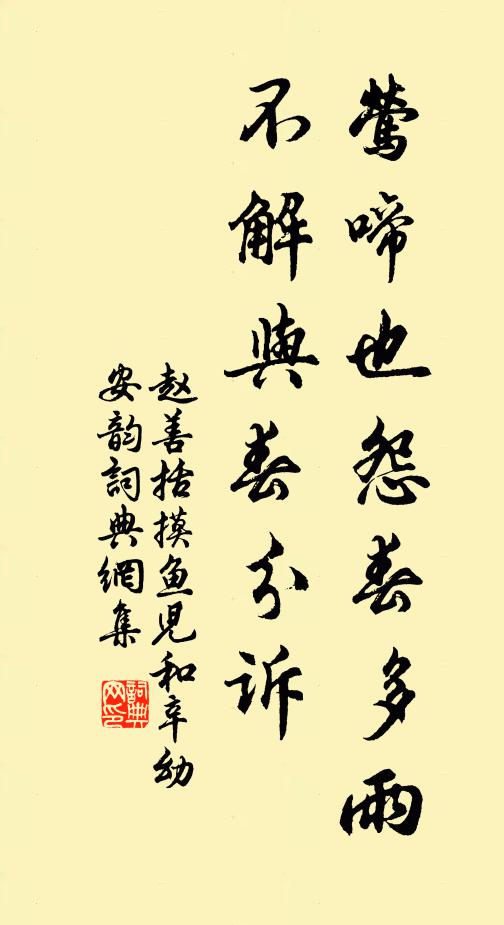 莺啼也怨春多雨
不解與春分诉
赵善括摸鱼児和辛幼
安韵詞典網集
詞典
网印